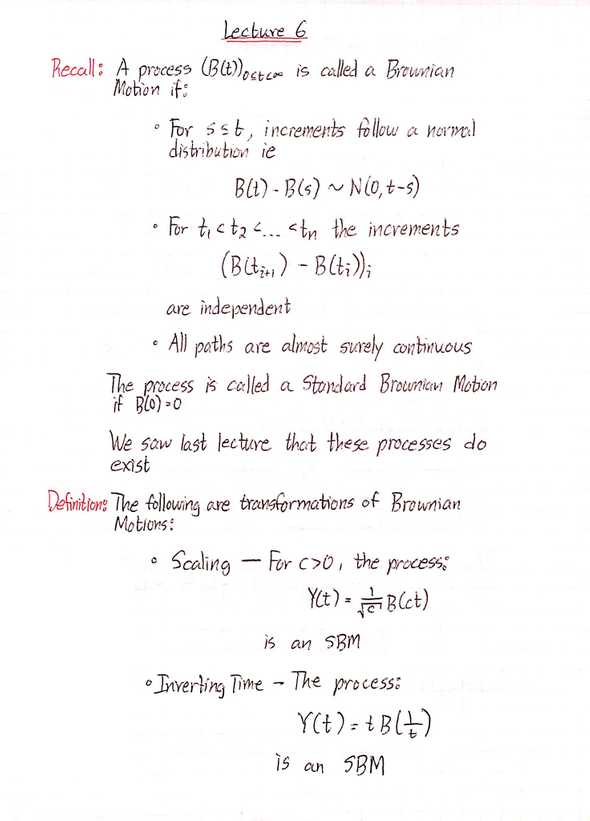 Lecture 6
Recall: A process (B(t))₀≤t<∞ is called a Brownian
Motion if:
• For s≤t, increments follow a normal
distribution ie
B(t) - B(s) ~ N(0, t-s)
• For t₁ < t₂ < ... < tₙ the increments
(B(tᵢ₊₁) - B(tᵢ))ᵢ
are independent
• All paths are almost surely continuous
The process is called a Standard Brownian Motion
if B(0)=0
We saw last lecture that these processes do
exist
Definition: The following are transformations of Brownian
Motions:
• Scaling — For c>0, the process:
Y(t) = 1/√c B(ct)
is an SBM
• Inverting Time - The process:
Y(t) = t B(1/t)
is an SBM